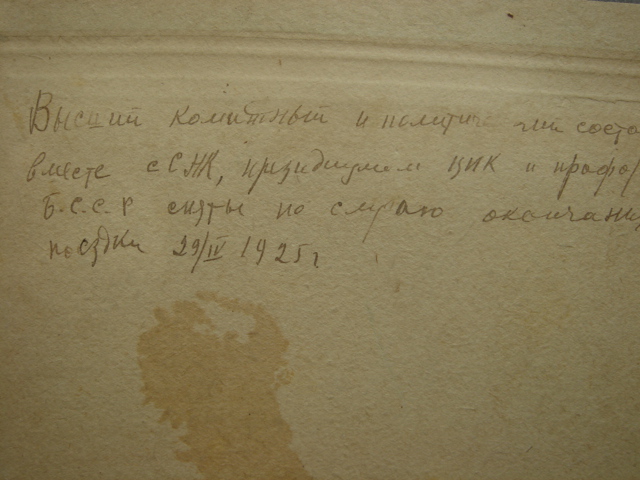 Высший комитный и политиче ски соста
вместе с СНК, президиумом ЦИК и профор
Б.С.С.Р сняты по случаю окончани
поездки 29/IV 1925г